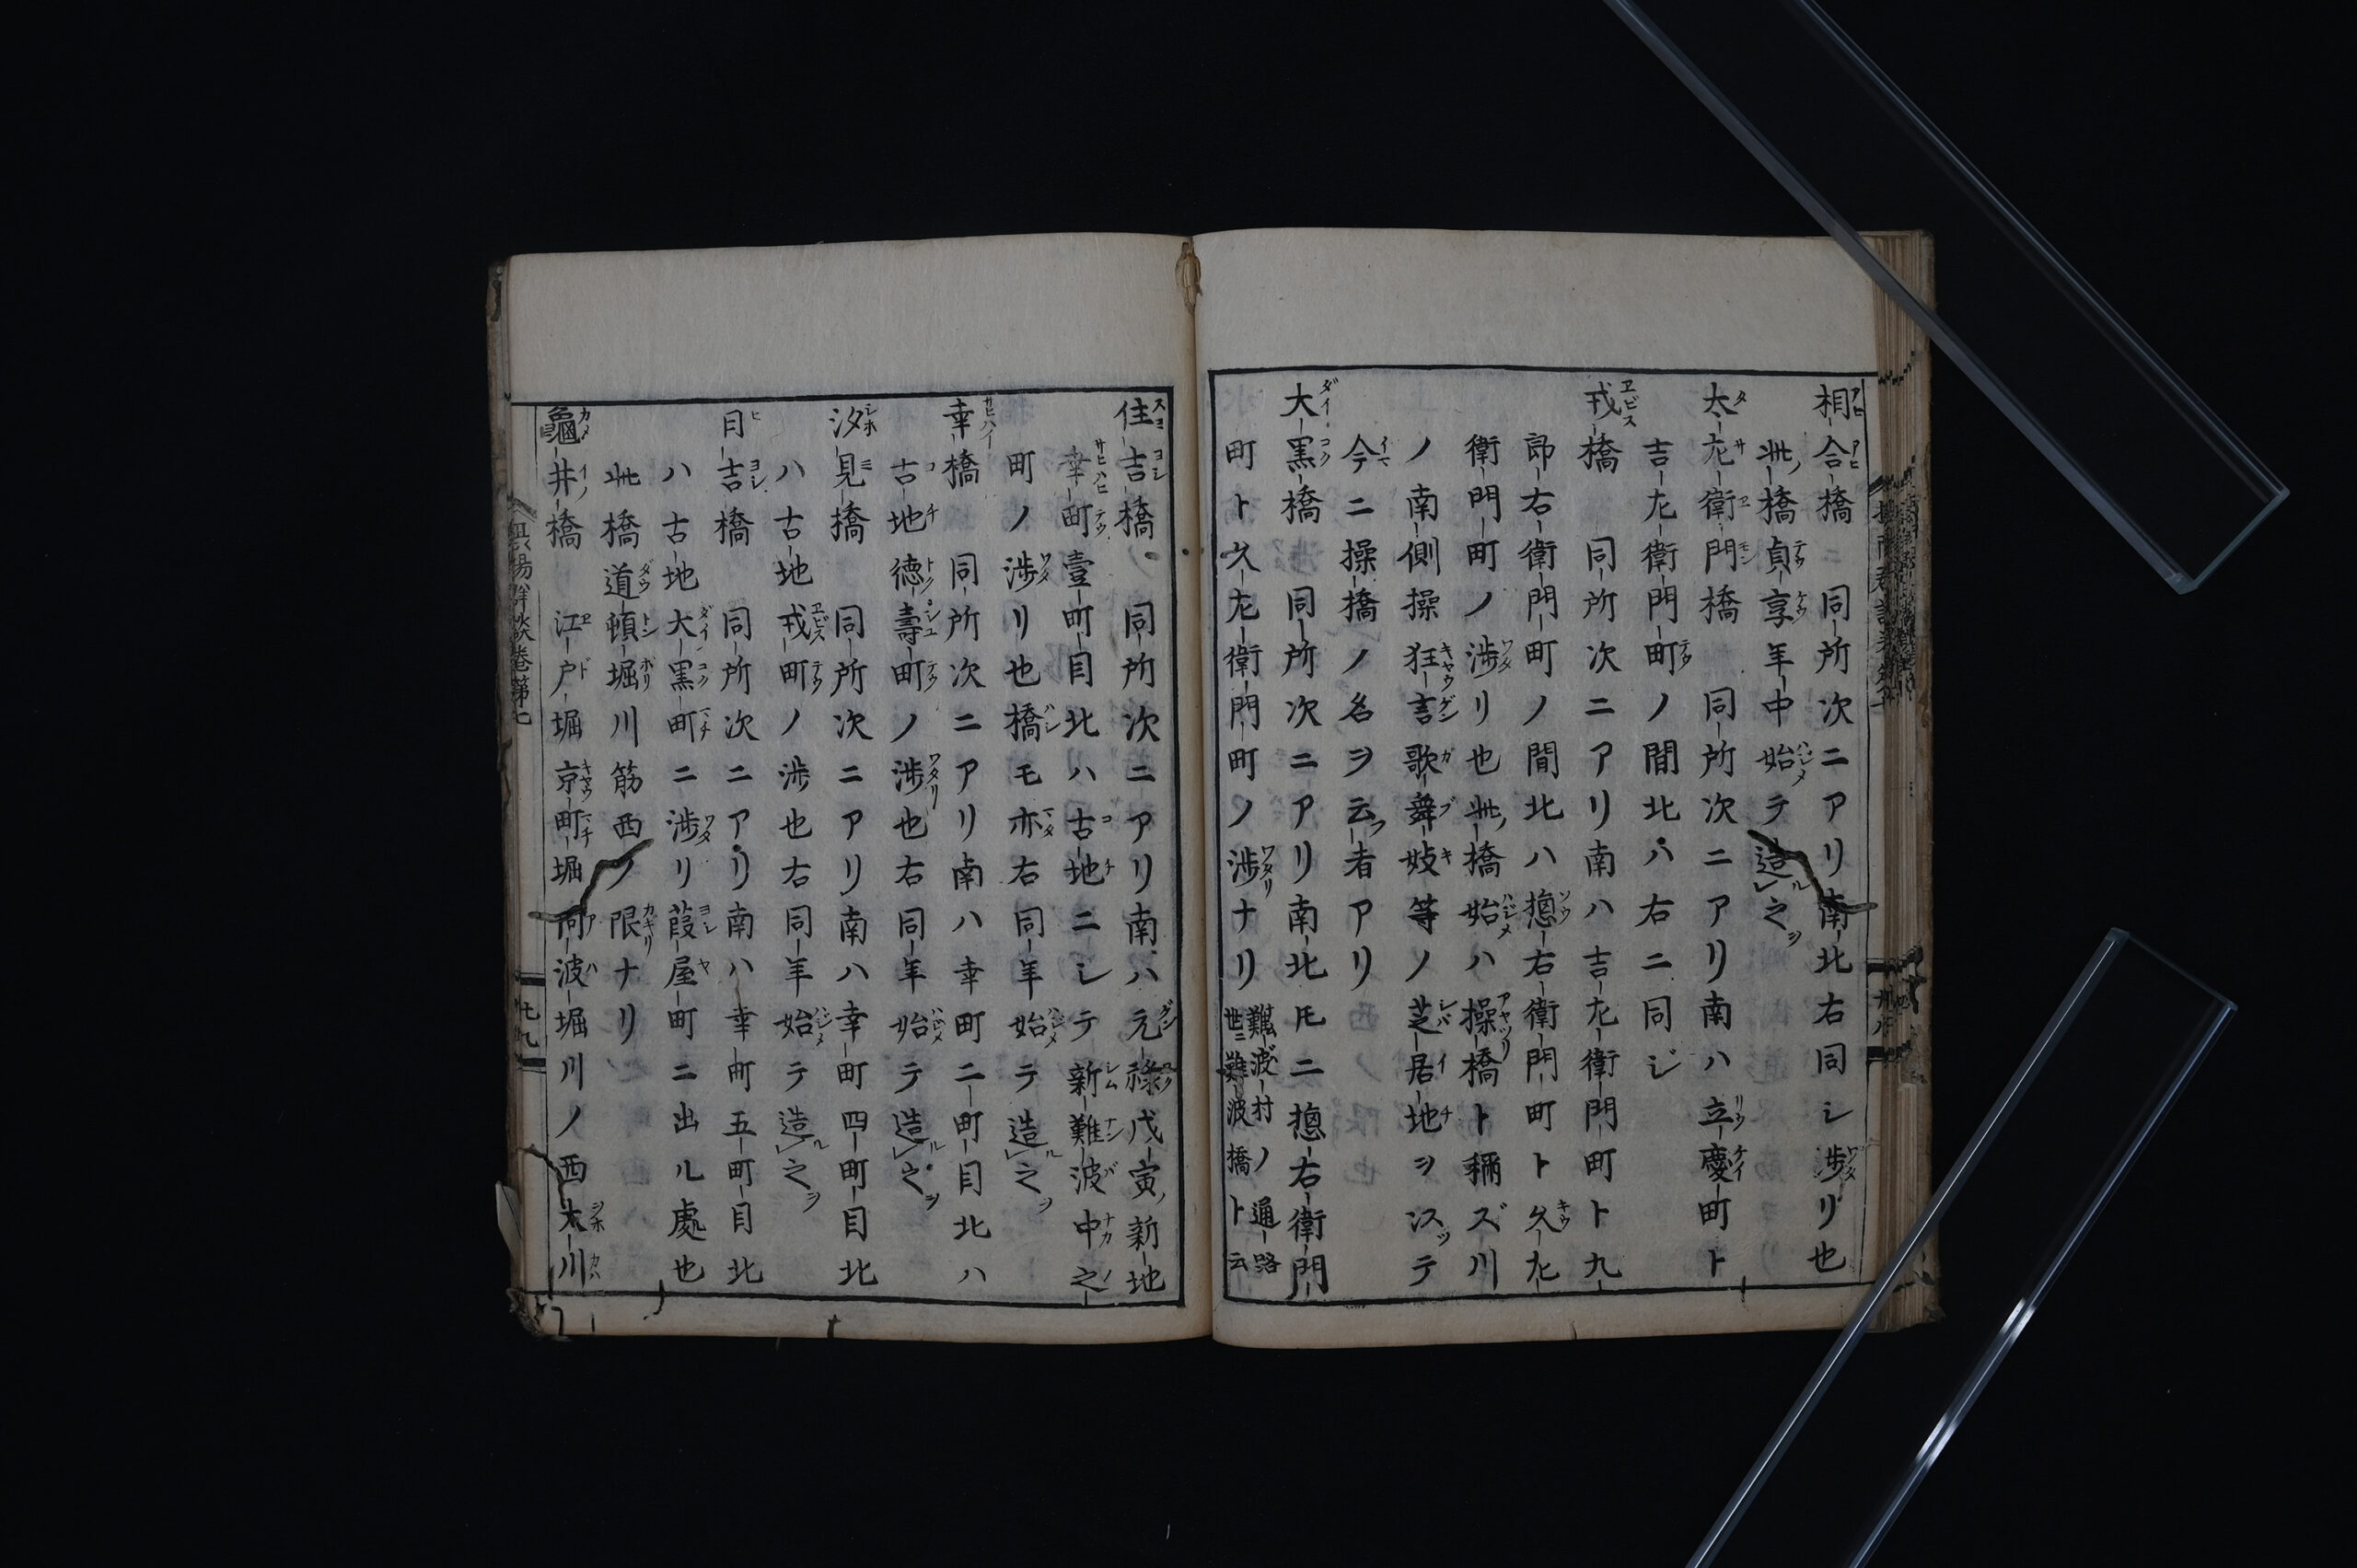 相合橋 同所次ニアリ南北右同シ渉リ也
此橋貞享年中始テ造之
太左衛門橋 同所次ニアリ南ハ立慶町ト
吉左衛門町ノ間北ハ右ニ同ジ
戎橋 同所次ニアリ南ハ吉左衛門町ト九
郎右衛門町ノ間北ハ摠右衛門町ト久左
衛門町ノ渉リ也此橋始ハ操橋ト稱ズ川
ノ南側操狂言歌舞妓等ノ芝居地ヲ以テ
今ニ操橋ノ名ヲ云者アリ
大黒橋 同所次ニアリ南北圧ニ摠右衛門
町ト久左衛門町ノ渉ナリ難波村ノ通路世ニ難波橋ト云
住吉橋 同所次ニアリ南ハ元禄戊寅新地
幸町壹町目北ハ古地ニシテ新難波中之
町ノ渉リ也橋モ亦右同年始テ造之
幸橋 同所次ニアリ南ハ幸町二町目北ハ
古地徳壽町ノ渉也右同年始テ造之
汐見橋 同所次ニアリ南ハ幸町四町目北
ハ古地戎町ノ渉也右同年始テ造之
日吉橋 同所次ニアリ南ハ幸町五町目北
ハ古地大黒町ニ渉リ葭屋町ニ出ル處也
此橋道頓堀川筋西ノ限ナリ
龜井橋 江戸堀京町堀阿波堀川ノ西大川
卷第七